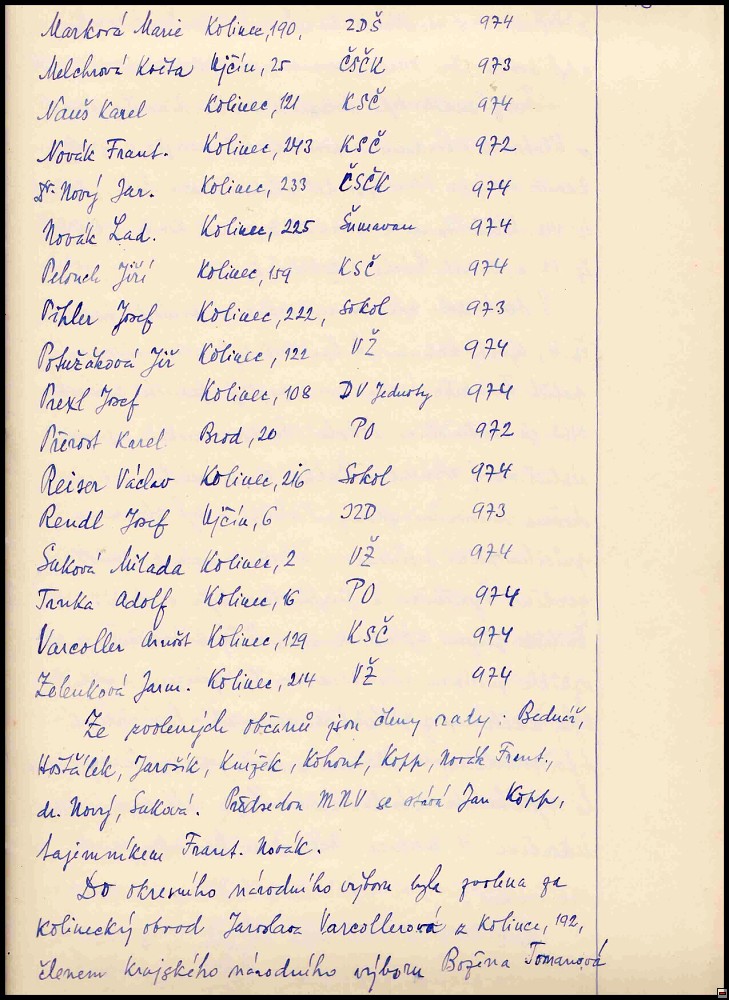 Marková Marie Kolinec, 190, ZDŠ 974
Melchrová Květa Ujčín, 25 ČSČK 973
Nauš Karel Kolinec, 121 KSČ 974
Novák Frant. Kolinec, 243 KSČ 972
Dr. Nový Jar. Kolinec, 233 ČSČK 974
Novák Lad. Kolinec, 225 Šumavan 974
Pelouch Jiří Kolinec, 159 KSČ 974
Pihler Josef Kolinec, 222, Sokol 973
Potužáková Jiř Kolinec, 122 VŽ 974
Prexl Josef Kolinec, 108 DV Jednoty 974
Přerost Karel Brod, 20 PO 972
Reiser Václav Kolinec, 216 Sokol 974
Rendl Josef Ujčín, 6 JZD 973
Suková Milada Kolinec, 2 VŽ 974
Trnka Adolf Kolinec, 16 PO 974
Varcoller Arnošt Kolinec, 129 KSČ 974
Zelenková Jarm. Kolinec, 214 VŽ 974
Ze zvolených občanů jsou členy rady: Bednář,
Hošťálek, Jarošík, Knížek, Kohout, Kopp, Novák Frant.,
dr. Nový, Suková. Předsedou MNV se stává Jan Kopp,
tajemníkem Frant. Novák.
Do okresního národního výboru byla zvolena za
kolinecký obvod Jaroslava Varcollerová z Kolince, 192,
členem krajského národního výboru Božena Tomanová